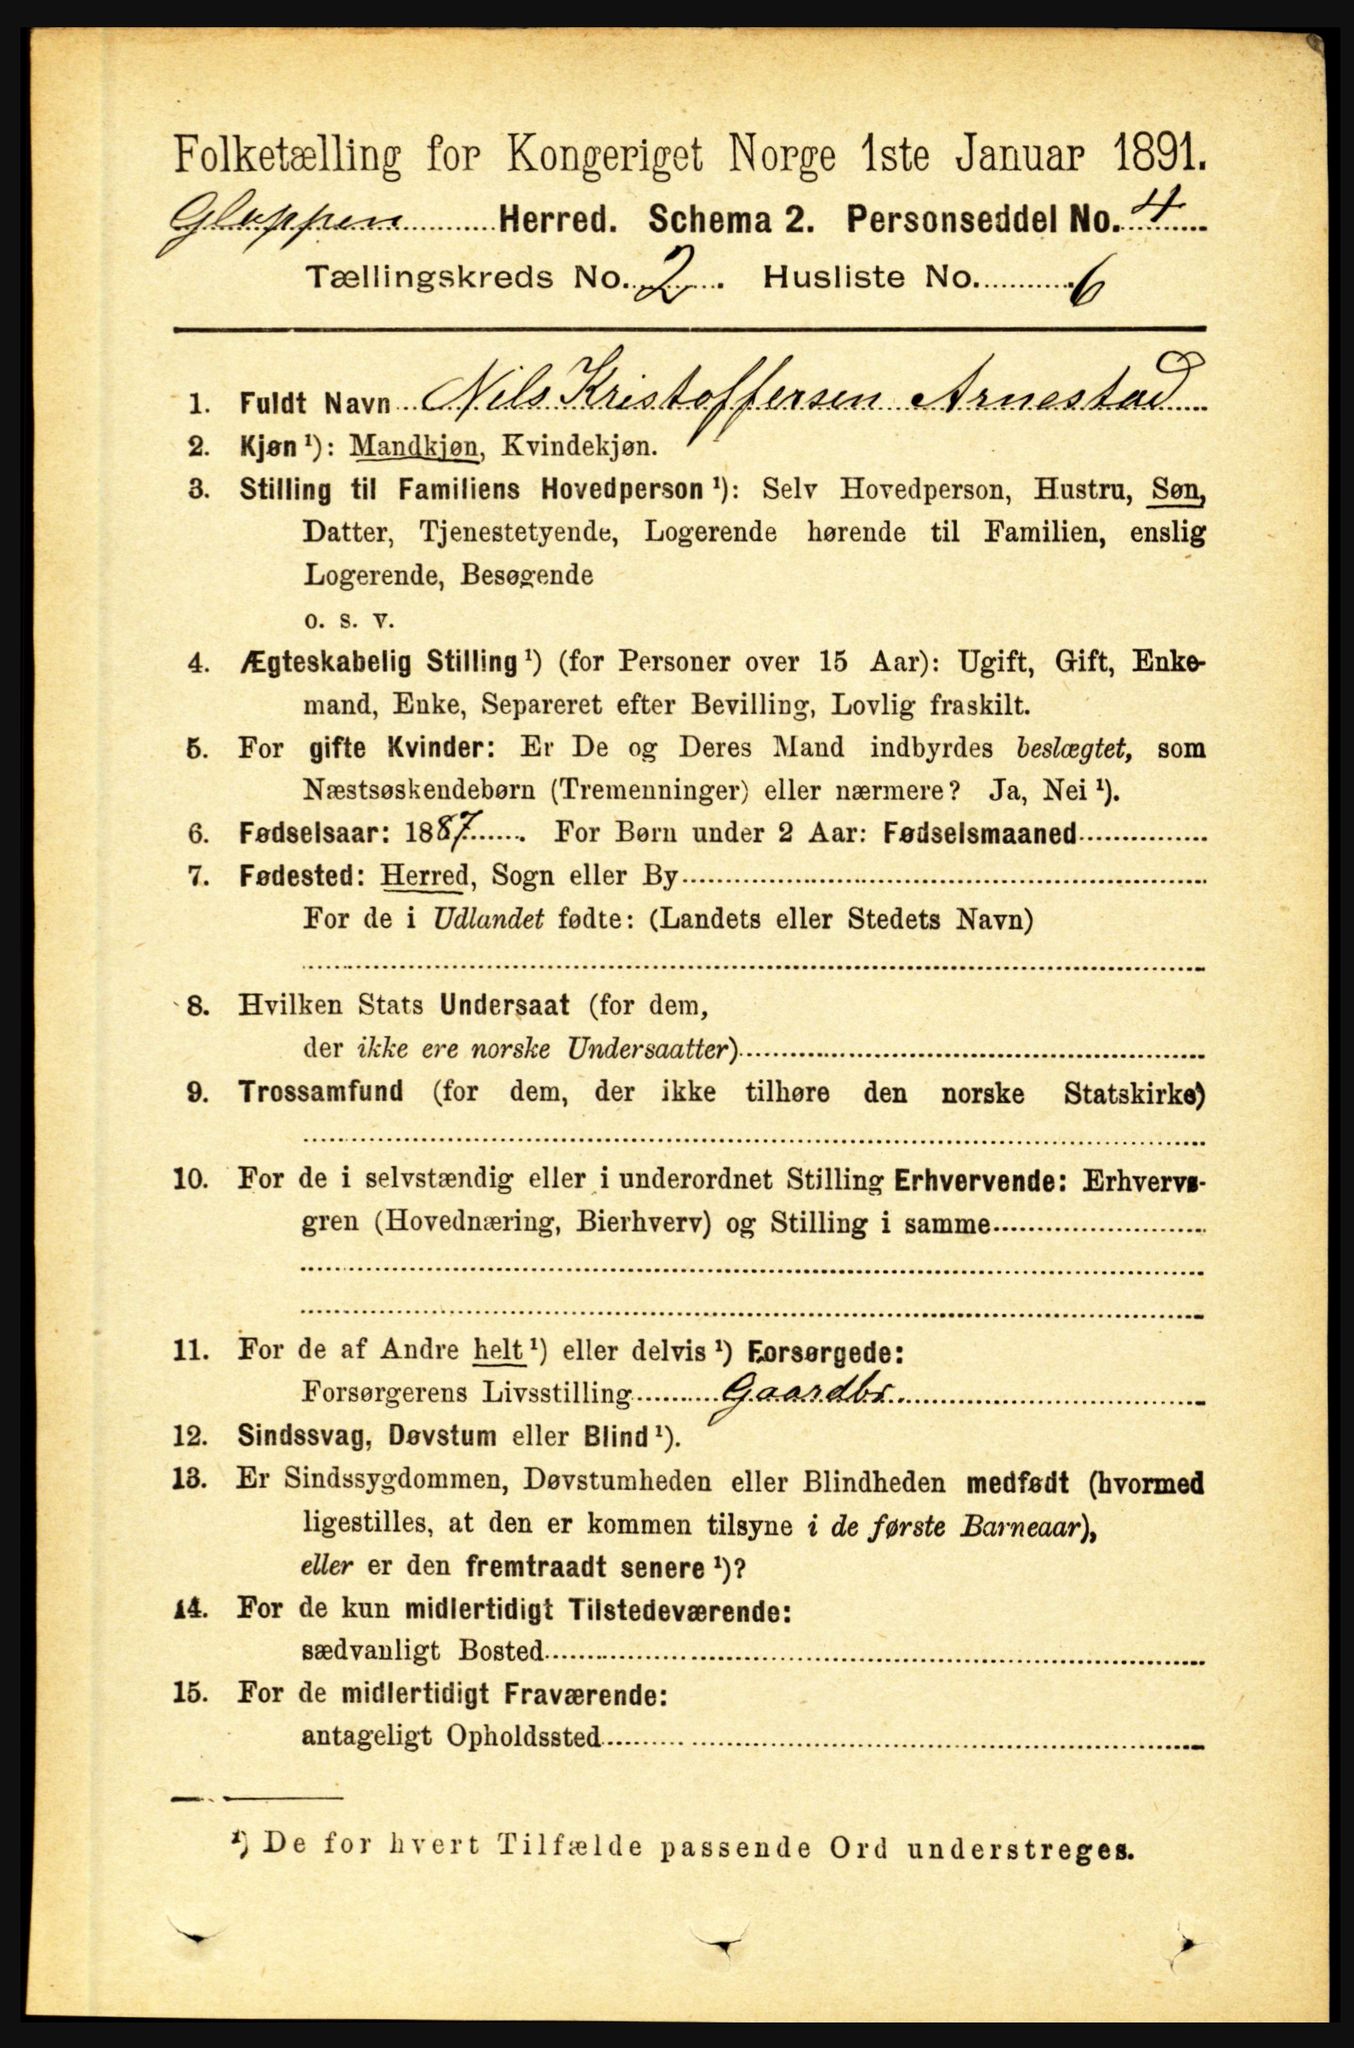 Folketælling for Kongeriget Norge 1ste Januar 1891.
Gloppen Herred. Schema 2. Personseddel No. 4
Tællingskreds No. 2. Husliste No. 6
1. Fuldt Navn Nils Kristoffersen Arnestad
2. Kjøn ¹): Mandkjøn, Kvindekjøn.
3. Stilling til Familiens Hovedperson ¹): Selv Hovedperson, Hustru, Søn,
Datter, Tjenestetyende, Logerende hørende til Familien, enslig
Logerende, Besøgende
o. s. v.
4. Ægteskabelig Stilling ¹) (for Personer over 15 Aar): Ugift, Gift, Enke-
mand, Enke, Separeret efter Bevilling, Lovlig fraskilt.
5. For gifte Kvinder: Er De og Deres Mand indbyrdes beslægtet, som
Næstsøskendebørn (Tremenninger) eller nærmere? Ja, Nei ¹).
6. Fødselsaar: 1887. For Børn under 2 Aar: Fødselsmaaned
7. Fødested: Herred, Sogn eller By
For de i Udlandet fødte: (Landets eller Stedets Navn)
8. Hvilken Stats Undersaat (for dem,
der ikke ere norske Undersaatter)
9. Trossamfund (for dem, der ikke tilhøre den norske Statskirke)
10. For de i selvstændig eller i underordnet Stilling Erhvervende: Erhvervs-
gren (Hovednæring, Bierhverv) og Stilling i samme
11. For de af Andre helt ¹) eller delvis ¹) Forsørgede:
Forsørgerens Livsstilling Gaardbr.
12. Sindssvag, Døvstum eller Blind ¹).
13. Er Sindssygdommen, Døvstumheden eller Blindheden medfødt (hvormed
ligestilles, at den er kommen tilsyne i de første Barneaar),
eller er den fremtraadt senere ¹)?
14. For de kun midlertidigt Tilstedeværende:
sædvanligt Bosted
15. For de midlertidigt Fraværende:
antageligt Opholdssted
¹) De for hvert Tilfælde passende Ord understreges.